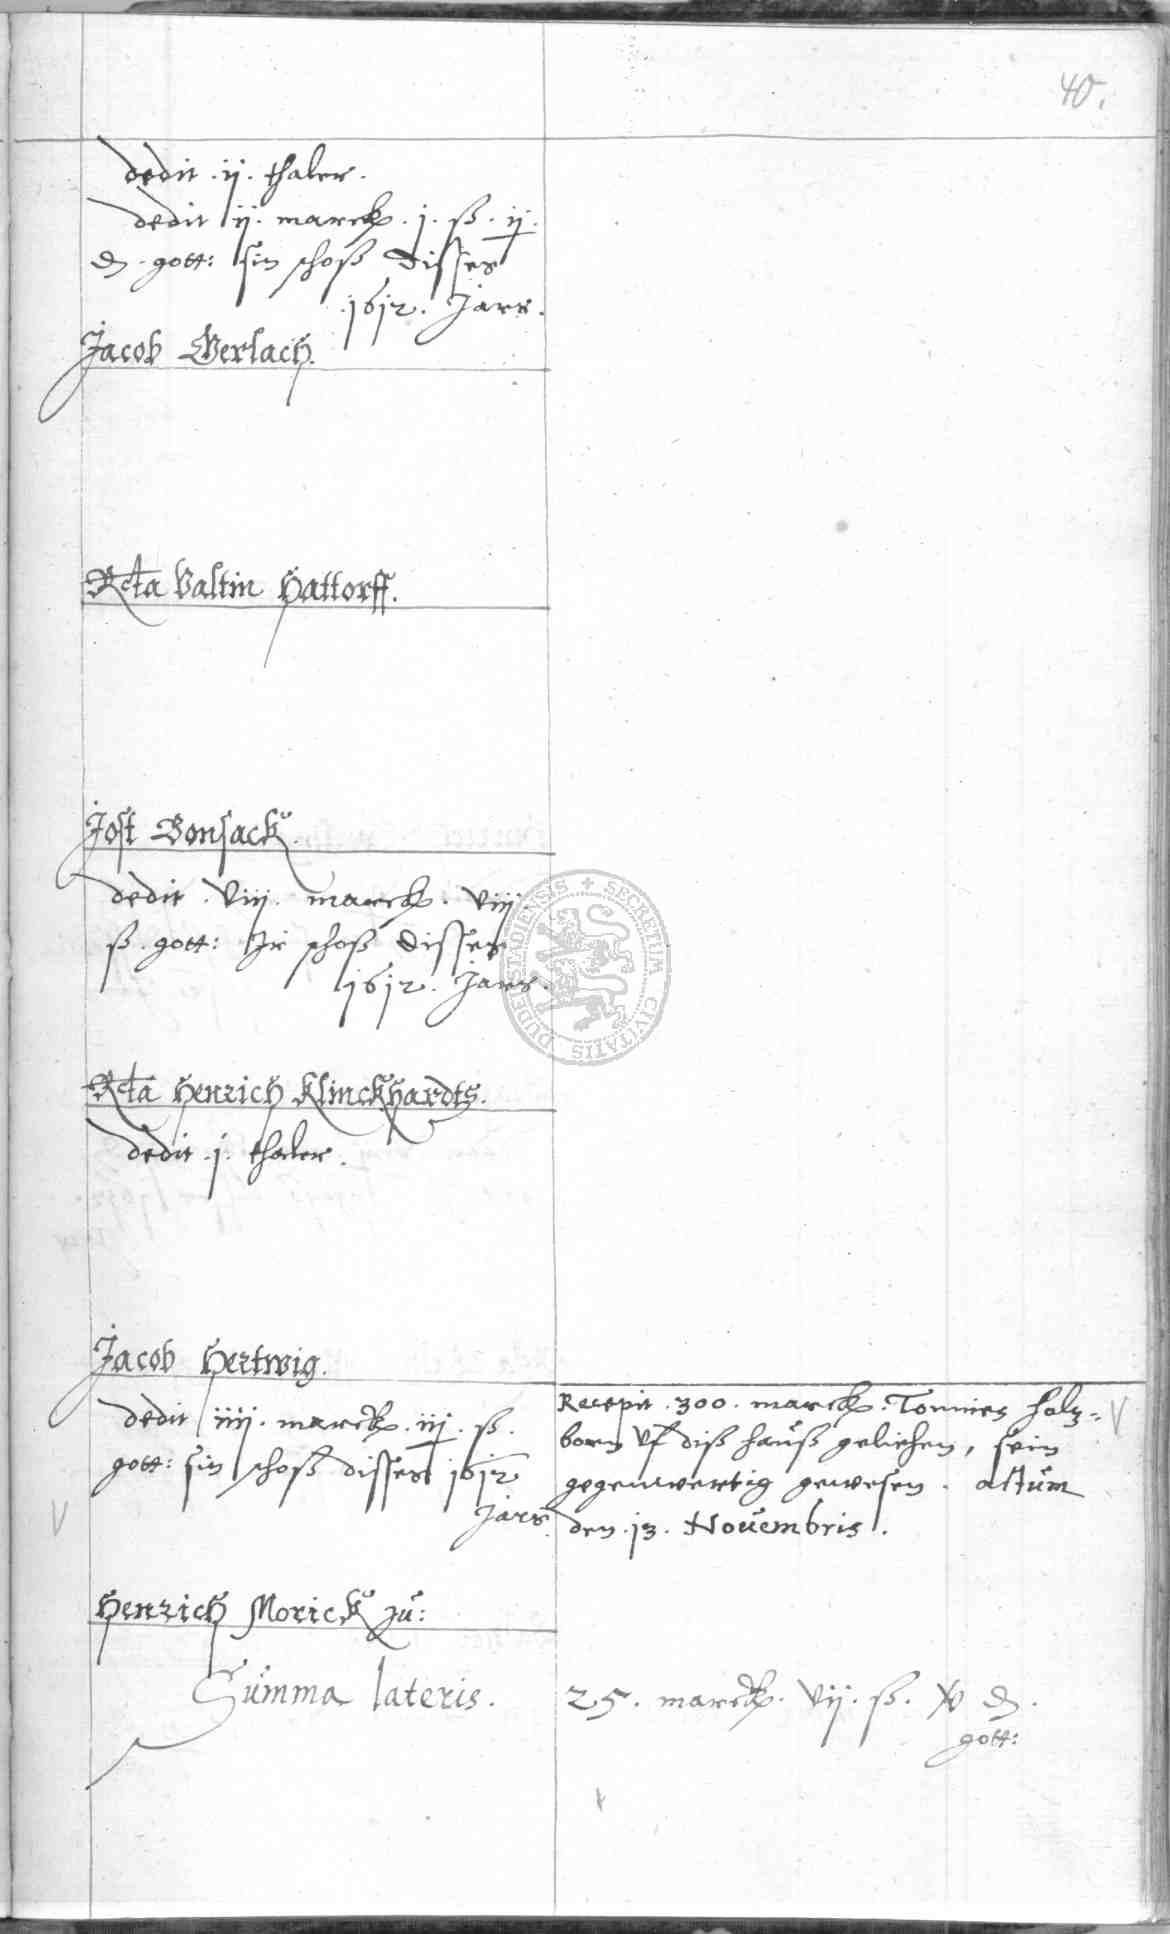 40.
dedit . ij . thaler .
dedit ij . marck . j . ß . ij .
₰ . gott: sin schoß disses
.1612. Jars .
Jacob Gerlach .
Rcta Valtin Hattorff .
Jost Bonsack .
dedit . viij . marck . viij .
ß . gott: Ir schoß disses
1612 . Jars .
Rcta Henrich Klinckhardts .
dedit . j . thaler .
Jacob Hertwig .
dedit iiij . marck . iij . ß .
gott: sin schoß disses 1612
Jars .
Recepit . 300 . marck . Tonnies holz=
born vf diß hauß geliehen, sein
gegenwertig gewesen . actum
den . 13 . Novembris .
Henrich Morick zu :
Summa lateris . 25 . marck . vij . ß . ₰ .
gott:
SECRETUM CIVITATIS DUDERSTADIENSIS